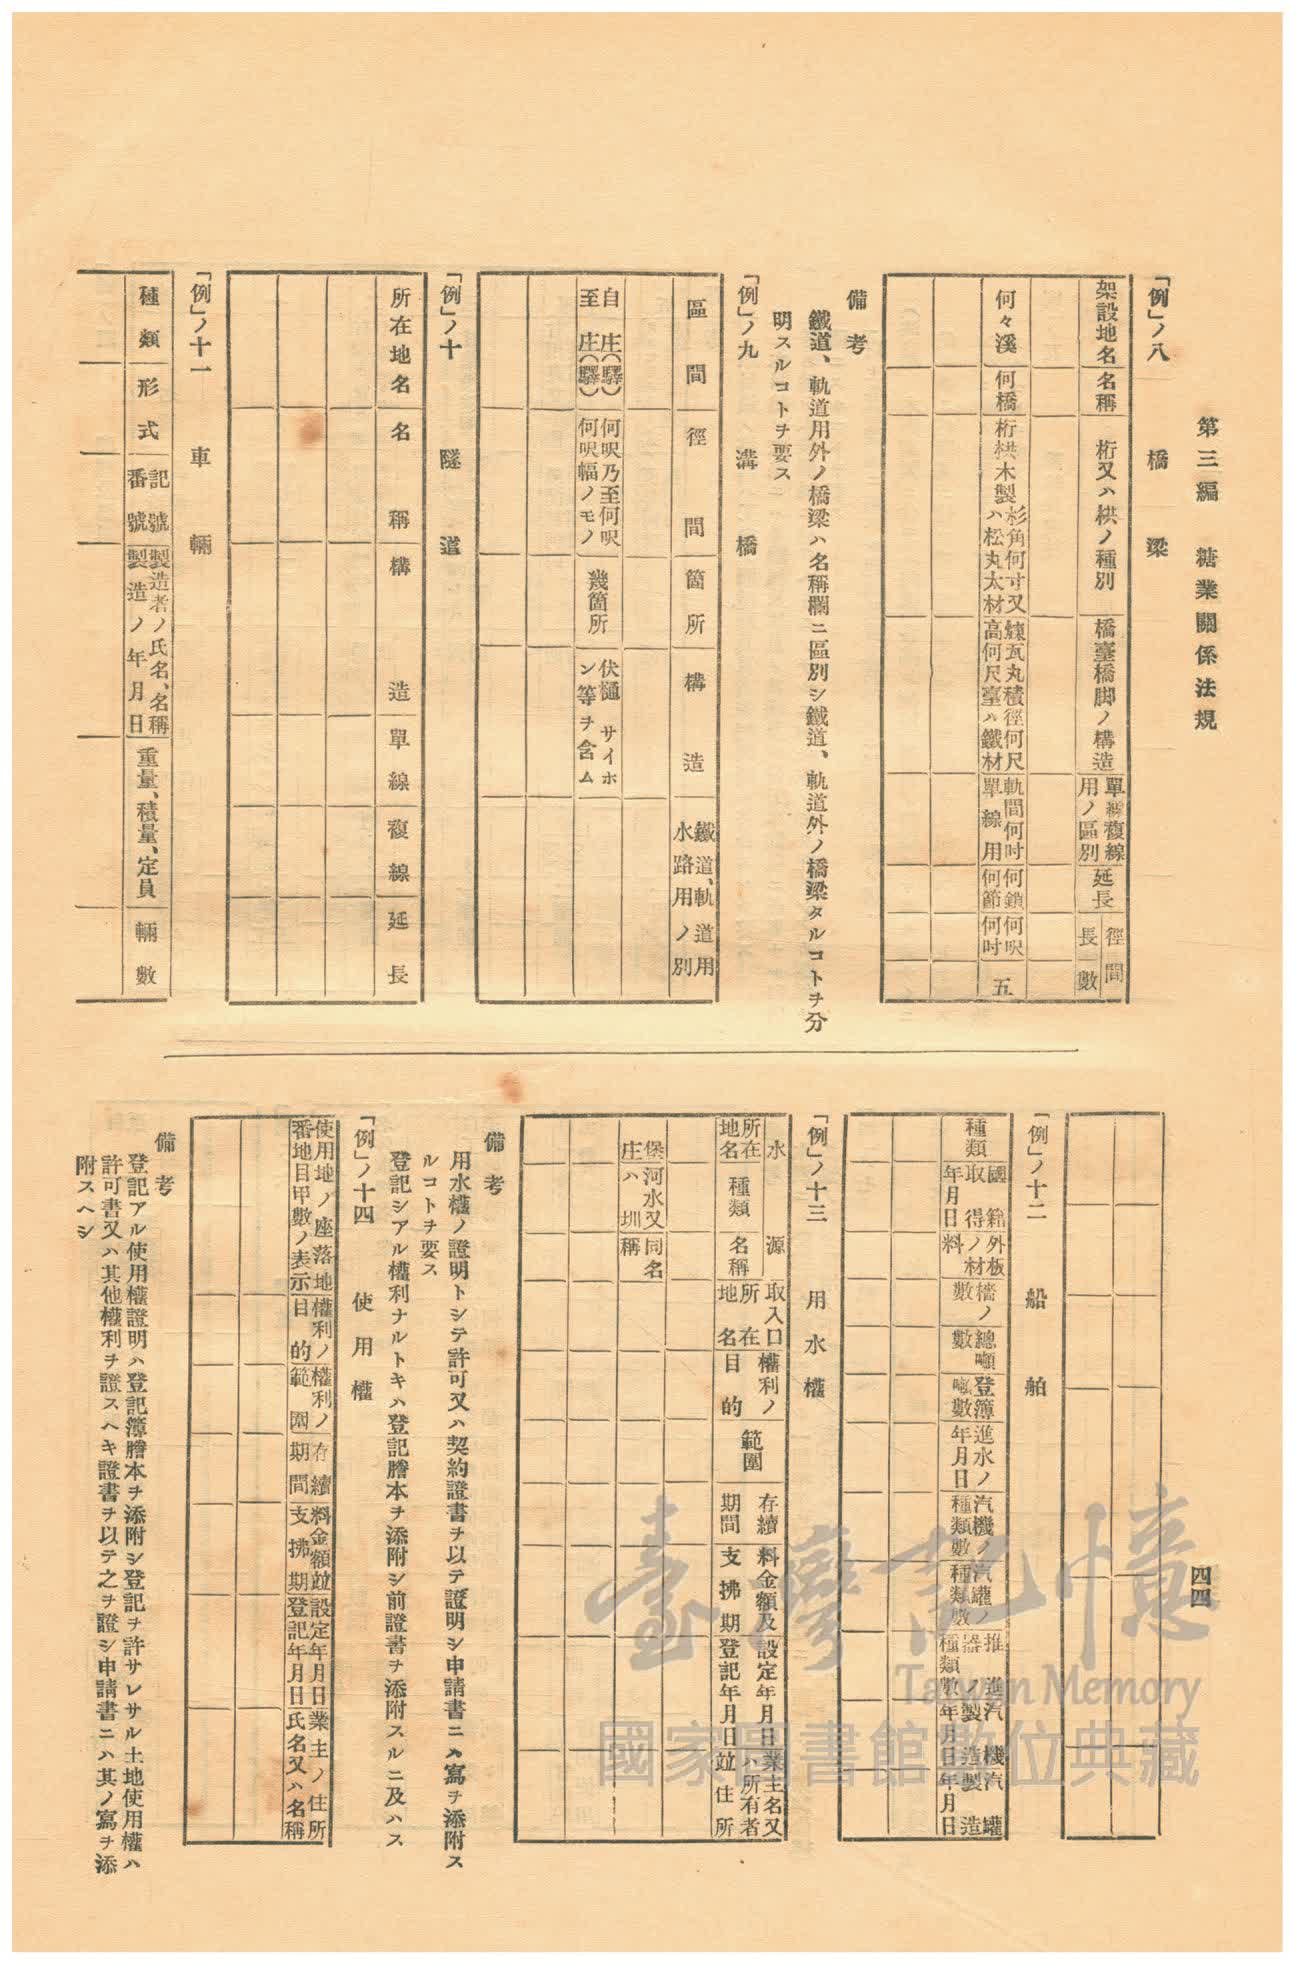 第三編　糖業關係法規
四四
「例」ノ八　橋梁
架設地名
名稱
桁又ハ栱ノ種別
橋臺橋脚ノ構造
單線複線用ノ區別
延長
徑間
長
數
何々溪
何橋
桁栱木製ハ杉角何寸又松丸太材
煉瓦丸積徑何尺高何尺臺ハ鐵材
軌間何呎單線用
何鎖何節
何呎何吋
五
備考
鐵道、軌道用外ノ橋梁ハ名稱欄ニ區別シ鐵道、軌道外ノ橋梁タルコトヲ分
明スルコトヲ要ス
「例」ノ九　溝橋
區間
徑間
箇所
構造
鐵道、軌道用水路用ノ別
自　庄（驛）
至　庄（驛）
何呎乃至何呎
何呎幅ノモノ
幾箇所
伏樋　サイホ
ン等ヲ含ム
「例」ノ十　隧道
所在地名
名稱
構造
單線複線
延長
「例」ノ十一　車輛
種類
形式
記號番號
製造者ノ氏名、名稱
製造ノ年月日
重量、積量、定員
輛數
「例」ノ十二　船舶
種類
國籍取得ノ年月日
外板ノ材料
檣ノ數
總噸數
登簿噸數
進水ノ年月日
汽機ノ種類數
汽罐ノ種類數
推進器ノ種類數
汽機製造年月日
汽罐製造年月日
「例」ノ十三　用水權
水源
所在地名
種類
名稱
取入口所在地名
權利ノ目的
範圍
存續期間
料金額及支拂期
設定年月日登記年月日
業主名又ハ所有者竝住所
堡庄
河水又ハ圳
同名稱
備考
用水權ノ證明トシテ許可又ハ契約證書ヲ以テ證明シ申請書ニハ寫ヲ添附ス
ルコトヲ要ス
登記シアル權利ナルトキハ登記謄本ヲ添附シ前證書ヲ添附スルニ及ハス
「例」ノ十四　使用權
使用地ノ座落地番地目甲數ノ表示
權利ノ目的
權利ノ範圍
存續期間
料金額竝支拂期
設定年月日登記年月日
業主ノ住所氏名又ハ名稱
備考
登記アル使用權證明ハ登記簿謄本ヲ添附シ登記ヲ許サレサル土地使用權ハ
許可書又ハ其他權利ヲ證スヘキ證書ヲ以テ之ヲ證シ申請書ニハ其ノ寫ヲ添
附スヘシ
臺灣記憶
Taiwan Memory
國家圖書館數位典藏